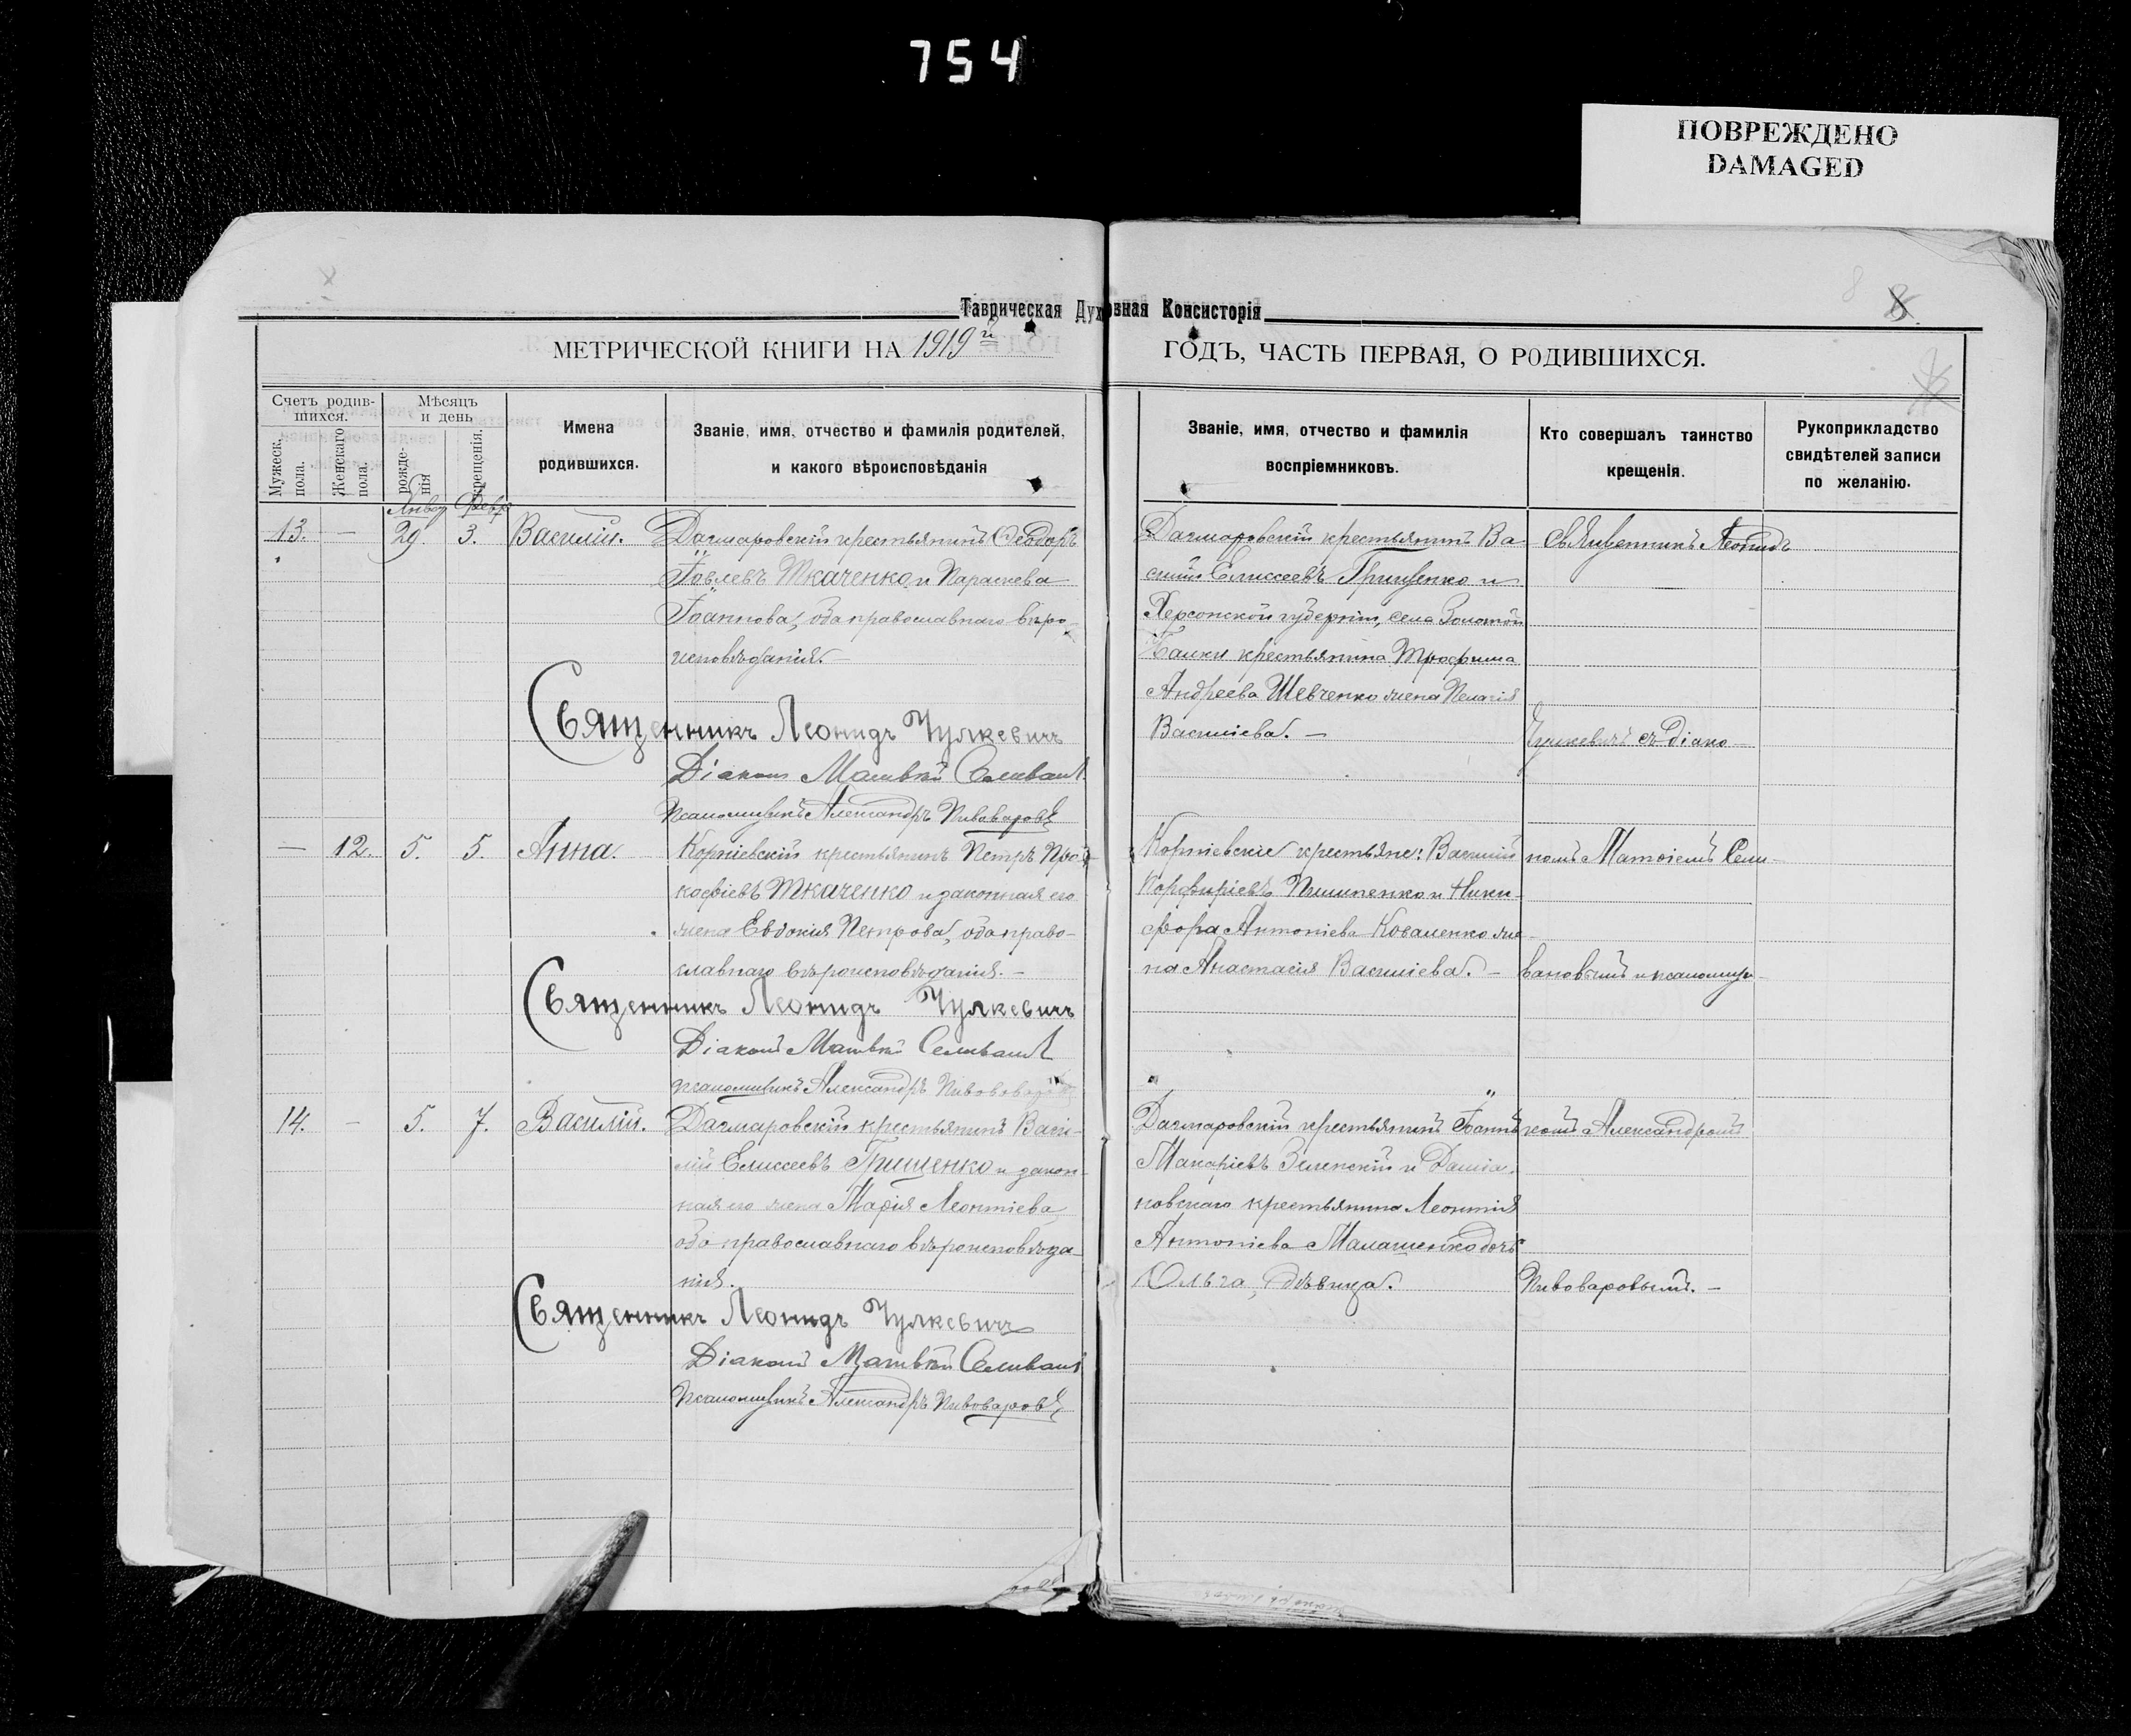 754
ПОВРЕЖДЕНО
DAMAGED
8
Таврическая Духовная Консисторія
МЕТРИЧЕСКОЙ КНИГИ НА 1919й ГОДЪ, ЧАСТЬ ПЕРВАЯ, О РОДИВШИХСЯ.
Счетъ родив-
шихся.
Мужеск. пола.
Женскаго пола.
Мѣсяцъ
и день
рожде-
нія
крещенія.
Имена
родившихся.
Званіе, имя, отчество и фамилія родителей,
и какого вѣроисповѣданія
Званіе, имя, отчество и фамилія
воспріемниковъ.
Кто совершалъ таинство
крещенія.
Рукоприкладство
свидѣтелей записи
по желанію.
Янвор Февр
13. — 29. 3. Василій. Дагмаровскій крестьянинъ Ѳеодоръ
Іовлевъ Ткаченко и Параскева
Іоаннова, оба православнаго вѣро-
исповѣданія. —
Священникъ Леонидъ Чулкевичъ
Діаконъ Матвѣй Селиванъ
Псаломщикъ Александръ Пивоваровъ
Дагмаровскій крестьянинъ Ва-
силій Елисеевъ Грищенко и
Херсонской губерніи, села Золотой
Балки крестьянина Трофима
Андреева Шевченко жена Пелагія
Василіева. —
Священникъ Леонидъ
Чулкевичъ съ діако-
— 12. 5. 5. Анна. Корніевскій крестьянинъ Петръ Про-
кофіевъ Ткаченко и законная его
жена Евдокія Петрова, оба право-
славнаго вѣроисповѣданія. —
Священникъ Леонидъ Чулкевичъ
Діаконъ Матвѣй Селиванъ
псаломщикъ Александръ Пивоваровъ
Корніевскіе крестьяне: Василій
Порфиріевъ Пилипенко и Ники-
фора Антоніева Коваленко же-
на Анастасія Василіева. —
номъ Матѳіемъ Сели-
вановымъ и псаломщи-
14. — 5. 7. Василій. Дагмаровскій крестьянинъ Васи-
лій Елисеевъ Грищенко и закон-
ная его жена Марія Леонтіева,
оба православнаго вѣроисповѣда-
нія.
Священникъ Леонидъ Чулкевичъ
Діаконъ Матвѣй Селиванъ
Псаломщикъ Александръ Пивоваровъ
Дагмаровскій крестьянинъ Іоаннъ
Макаріевъ Зеленскій и
крестьянина Леонтія
Антоніева Малашенко дочь
Ольга, дѣвица.
комъ Александромъ
Пивоваровымъ. —